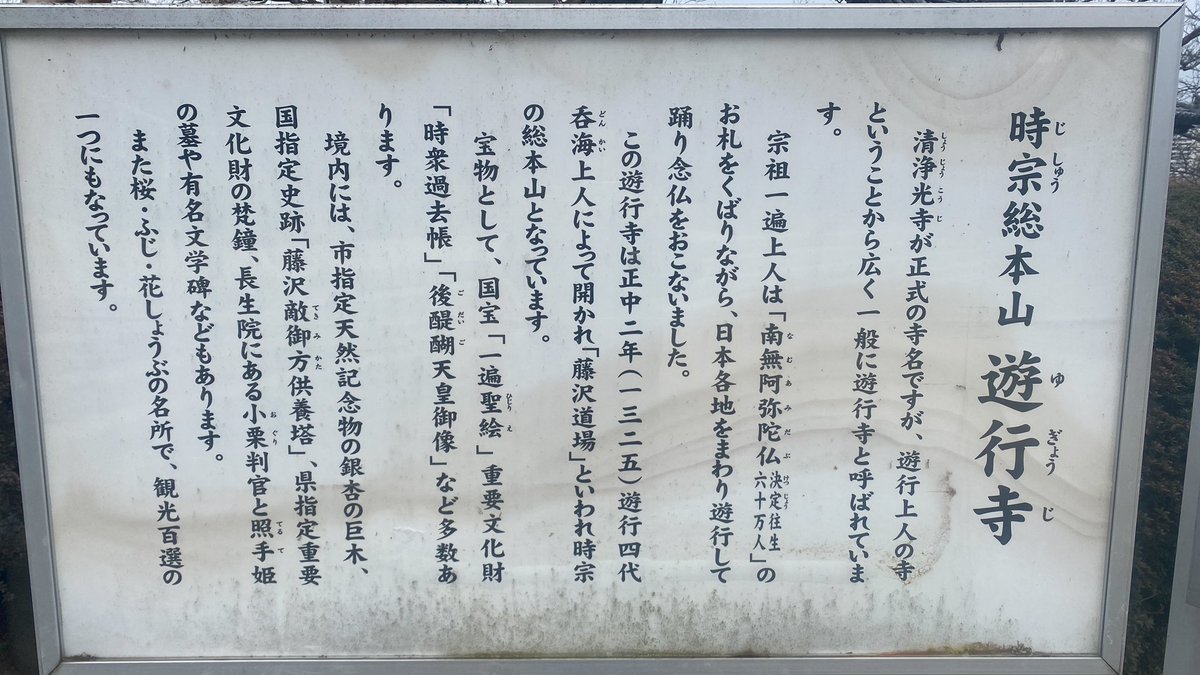 時宗総本山 遊行寺
清浄光寺が正式の寺名ですが、遊行上人の寺
ということから広く一般に遊行寺と呼ばれていま
す。
宗祖一遍上人は「南無阿弥陀仏 決定往生六十万人」の
お札をくばりながら、日本各地をまわり遊行して
踊り念仏をおこないました。
この遊行寺は正中二年(一三二五)遊行四代
呑海上人によって開かれ「藤沢道場」といわれ時宗
の総本山となっています。
宝物として、国宝「一遍聖絵」重要文化財
「時衆過去帳」「後醍醐天皇御像」など多数あ
ります。
境内には、市指定天然記念物の銀杏の巨木、
国指定史跡「藤沢敵御方供養塔」、県指定重要
文化財の梵鐘、長生院にある小栗判官と照手姫
の墓や有名文学碑などもあります。
また桜・ふじ・花しょうぶの名所で、観光百選の
一つにもなっています。